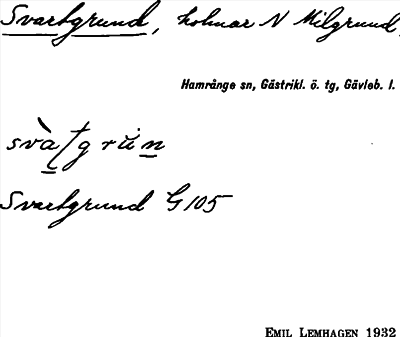 Svartgrund, holmar N Milgrund,
Hamrånge sn, Gästrikl. ö. tg, Gävleb. l.
svàtgrŭn
Svartgrund G 105
EMIL LEMHAGEN 1932